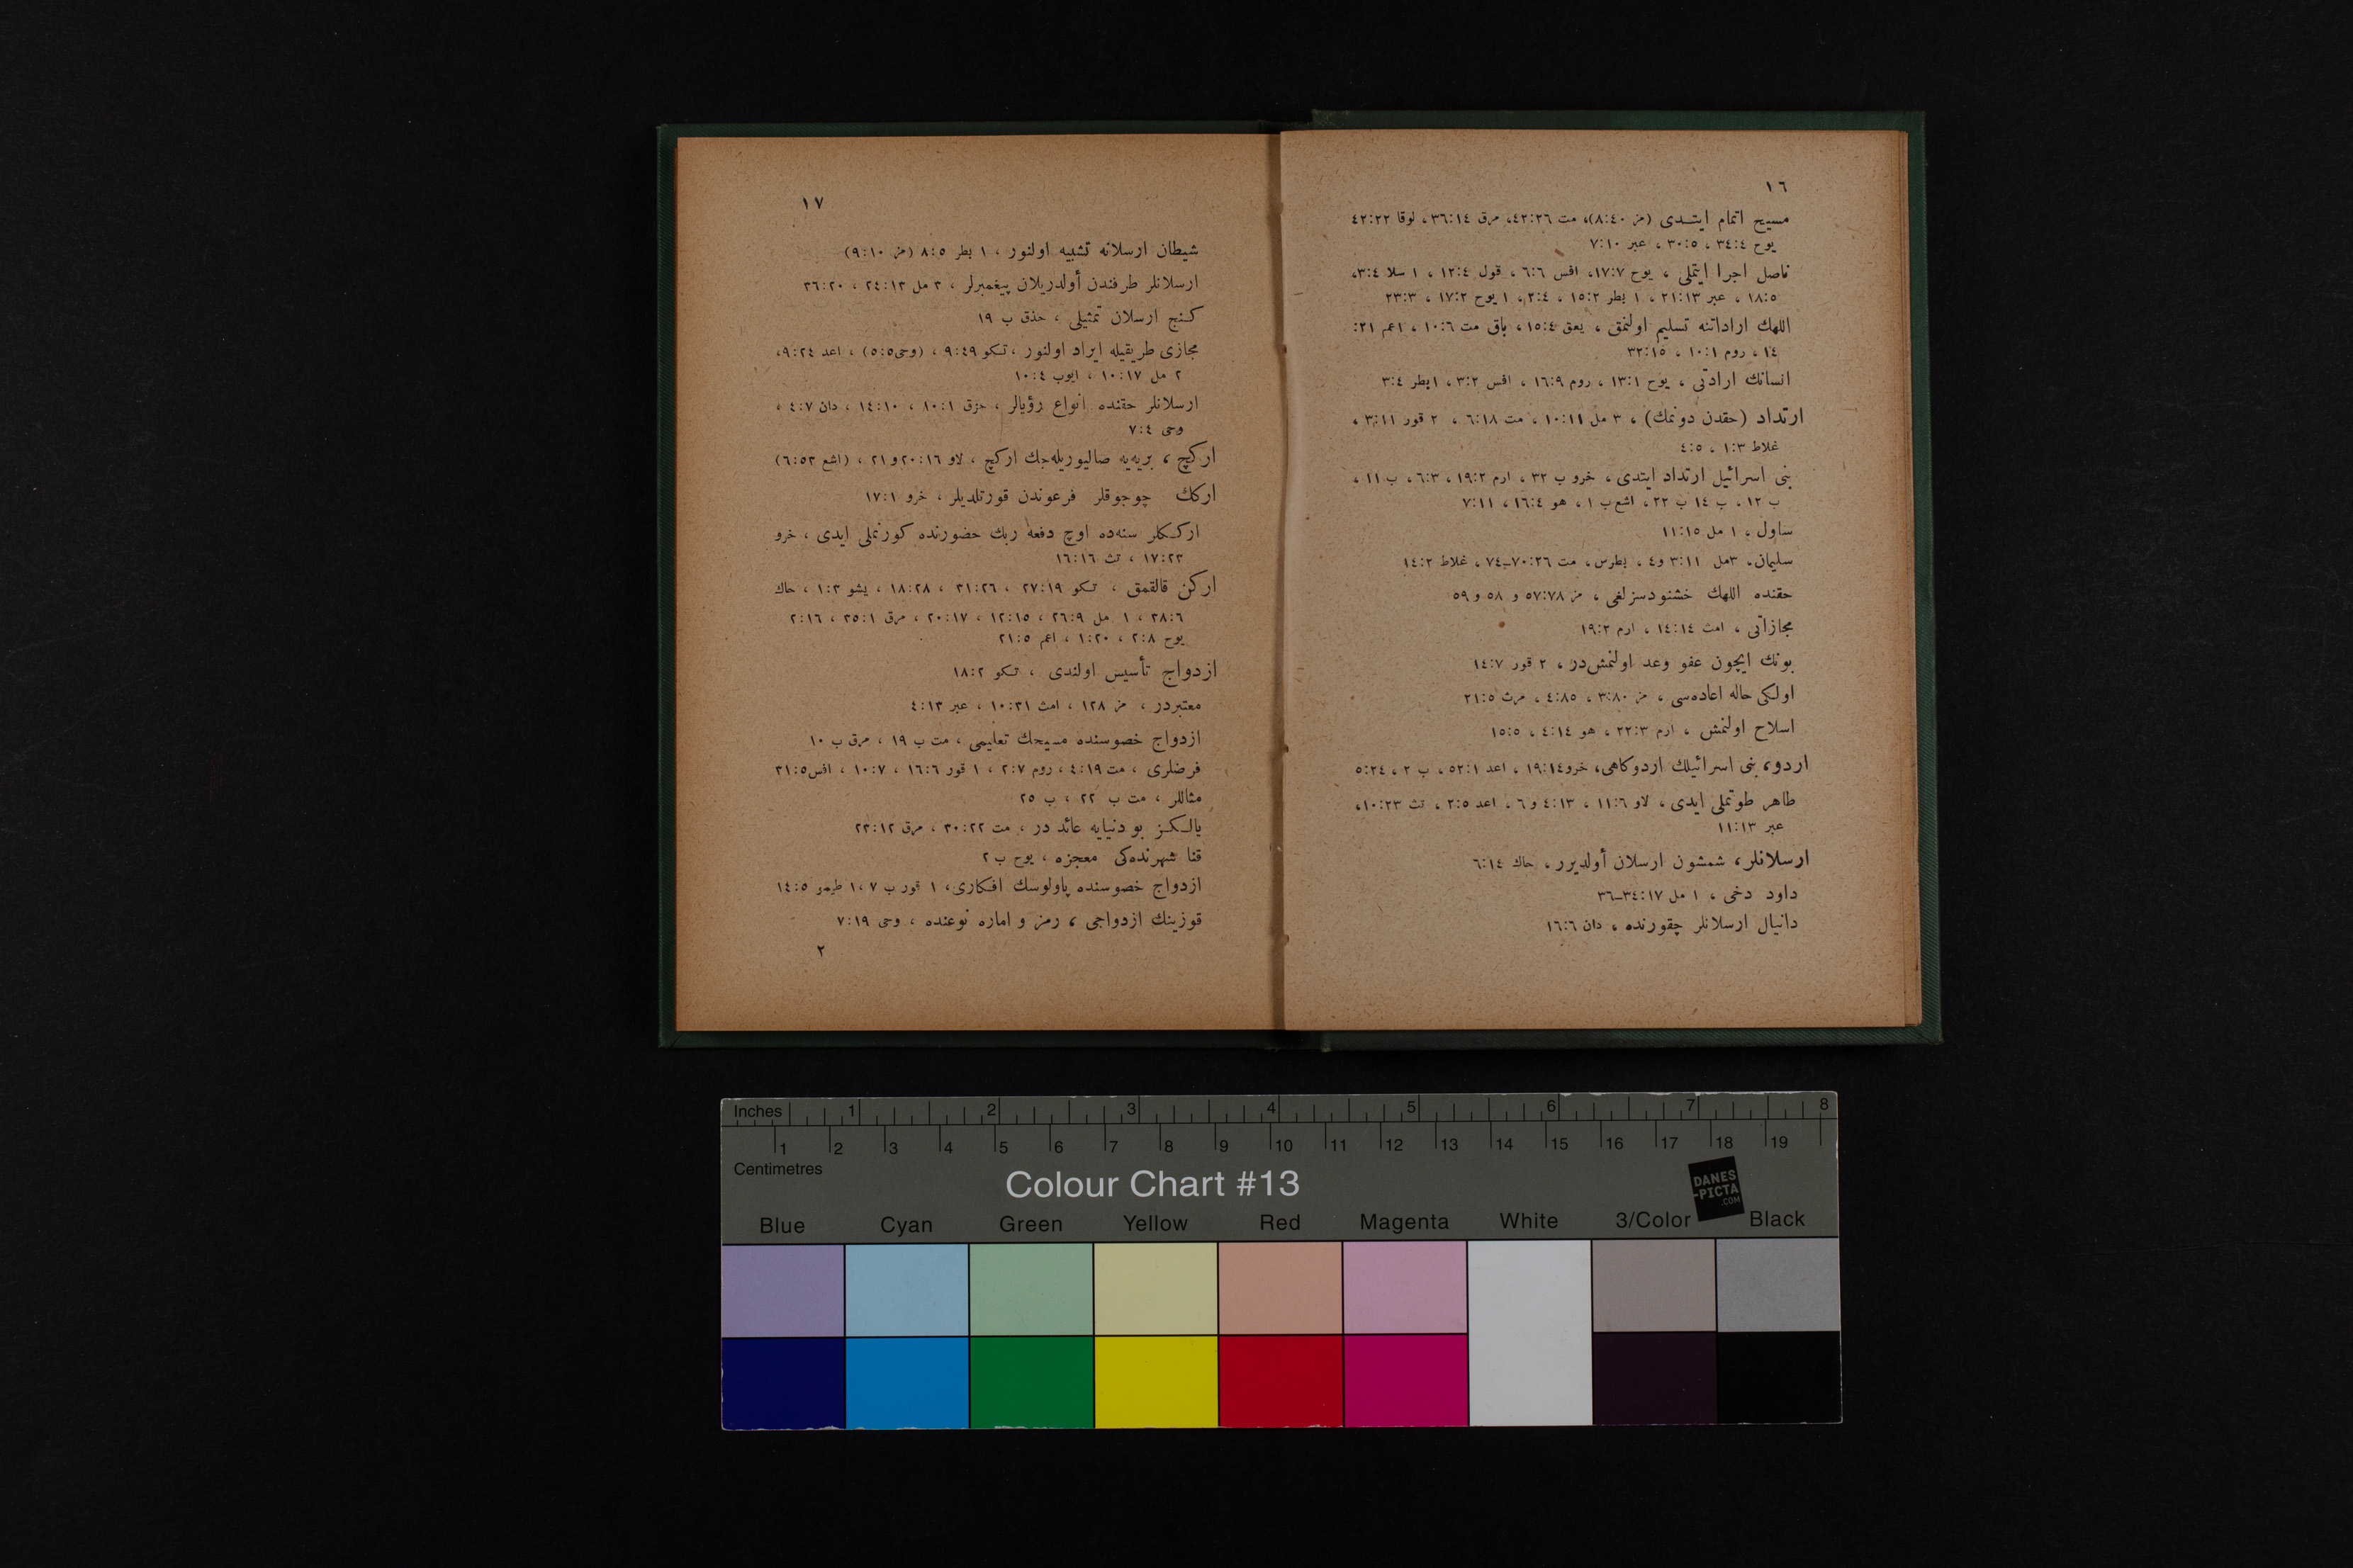 ١٦
مسیح اتمام ایتـدی (مز ٨:٤٠)، مت ٤٢:٢٦، مرق ٣٦:١٤، لوقا ٤٢:٢٢
یوح ٣٤:٤ ، ٣٠:٥ ، عبر ٧:١٠
ناصل اجرا ایتملی ، یوح ١٧:٧، افس ٦:٦ ، قول ١٢:٤ ، ١ سلا ٣:٤،
١٨:٥ ، عبر ٢١:١٣ ، ١ بطر ١٥:٢ ، ٢:٤، ١ یوح ١٧:٢ ، ٢٣:٣
اللهك اراداتنه تسلیم اولنمق ، یعق ١٥:٤، باق مت ١٠:٦ ، اعم ٢١:
١٤ ، روم ١٠:١ ، ٣٢:١٥
انسانك ارادتی ، یوح ١٣:١ ، روم ١٦:٩ ، افس ٣:٢ ، ١بطر ٣:٤
ارتداد (حقدن دونمك) ، ٣ مل ١٠:١١ ، مت ٦:١٨ ، ٢ قور ٣:١١ ،
غلاط ١:٣ ، ٤:٥
بنی اسرائیل ارتداد ایتدی ، خرو ب ٣٢ ، ارم ١٩:٢ ، ٦:٣ ، ب ١١ ،
ب ١٢ ، ب ١٤ ب ٢٢ ، اشع ب ١ ، هو ١٦:٤ ، ٧:١١
ساول ، ١ مل ١١:١٥
سلیمان ، ٣مل ٣:١١ و٤ ، بطرس ، مت ٧٠:٢٦ـ٧٤ ، غلاط ١٤:٢
حقنده اللهك خشنودسزلغی ، مز ٥٧:٧٨ و ٥٨ و ٥٩
مجازاتی ، امث ١٤:١٤ ، ارم ١٩:٢
بونك ایچون عفو وعد اولنمش‌در ، ٢ قور ١٤:٧
اولكی حاله اعاده‌سی ، مز ٣:٨٠ ، ٤:٨٥ ، مرث ٢١:٥
اسلاح اولنمش ، ارم ٢٢:٣ ، هو ٤:١٤ ، ١٥:٥
اردو، بنی اسرائیلك اردوكاهی، خرو١٩:١٤ ، اعد ٥٢:١ ، ب ٢ ، ٥:٢٤
طاهر طوتملی ایدی ، لاو ١١:٦ ، ٤:١٣ و ٦ ، اعد ٢:٥ ، تث ١٠:٢٣،
عبر ١١:١٣
ارسلانلر، شمشون ارسلان أولدیرر ، حاك ٦:١٤
داود دخی ، ١ مل ٣٤:١٧ـ٣٦
دانیال ارسلانلر چقورنده ، دان ١٦:٦
١٧
شیطان ارسلانه تشبیه اولنور ، ١ بطر ٨:٥ (مز ٩:١٠)
ارسلانلر طرفندن أولدریلان پیغمبرلر ، ٣ مل ٢٤:١٣ ، ٣٦:٢٠
كـنج ارسلان تمثیلی ، حذق ب ١٩
مجازی طریقیله ایراد اولنور ، تـكو ٩:٤٩ ، (وحی٥:٥) ، اعد ٩:٢٤،
٢ مل ١٠:١٧ ، ایوب ١٠:٤
ارسلانلر حقنده انواع رؤیالر ، حزق ١٠:١ ، ١٤:١٠ ، دان ٤:٧ ،
وحی ٧:٤
اركچ ، بریه‌یه صالیوریله‌جك اركچ ، لاو ٢٠:١٦ و ٢١ ، (اشع ٦:٥٣)
اركك چوجوقلر فرعوندن قورتلدیلر ، خرو ١٧:١
اركـكلر سنه‌ده اوچ دفعه ربك حضورنده كورنملی ایدی ، خرو
١٧:٢٣ ، تث ١٦:١٦
اركن قالقمق ، تـكو ٢٧:١٩ ، ٣١:٢٦ ، ١٨:٢٨ ، یشو ١:٣ ، حاك
٣٨:٦ ، ١ مل ٢٦:٩ ، ١٢:١٥ ، ٢٠:١٧ ، مرق ٣٥:١ ، ٢:١٦
یوح ٢:٨ ، ١:٢٠ ، اعم ٢١:٥
ازدواج تأسیس اولندی ، تـكو ١٨:٢
معتبردر ، مز ١٢٨ ، امث ١٠:٣١ ، عبر ٤:١٣
ازدواج خصوسنده مسیحك تعلیمی ، مت ب ١٩ ، مرق ب ١٠
فرضلری ، مت ٤:١٩ ، روم ٢:٧ ، ١ قور ١٦:٦ ، ١٠:٧ ، افس٢١:٥
مثاللر ، مت ب ٢٢ ، ب ٢٥
یالـكـز بو دنیایه عائد در ، مت ٣٠:٢٢ ، مرق ٢٣:١٢
قنا شهرنده‌كی معجزه ، یوح ب ٢
ازدواج خصوسنده پاولوسك افـكاری، ١ قور ب ٧ ،١ طیمو ١٤:٥
قوزینك ازدواجی ، رمز و اماره نوعنده ، وحی ٧:١٩
٢
Inches 1 2 3 4 5 6 7 8
1 2 3 4 5 6 7 8 9 10 11 12 13 14 15 16 17 18 19
Centimetres
Colour Chart #13
DANES
-PICTA
.COM
Blue Cyan Green Yellow Red Magenta White 3/Color Black